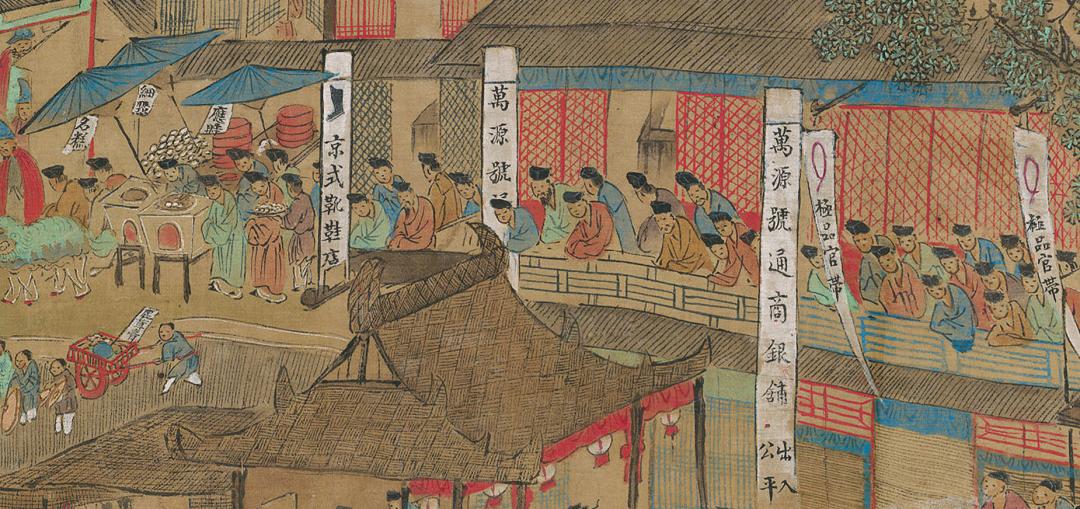 極品官帶
極品官帶
萬源號通商銀舖
出入
公平
萬源號
京式靴鞋店
應時
細點
名糕